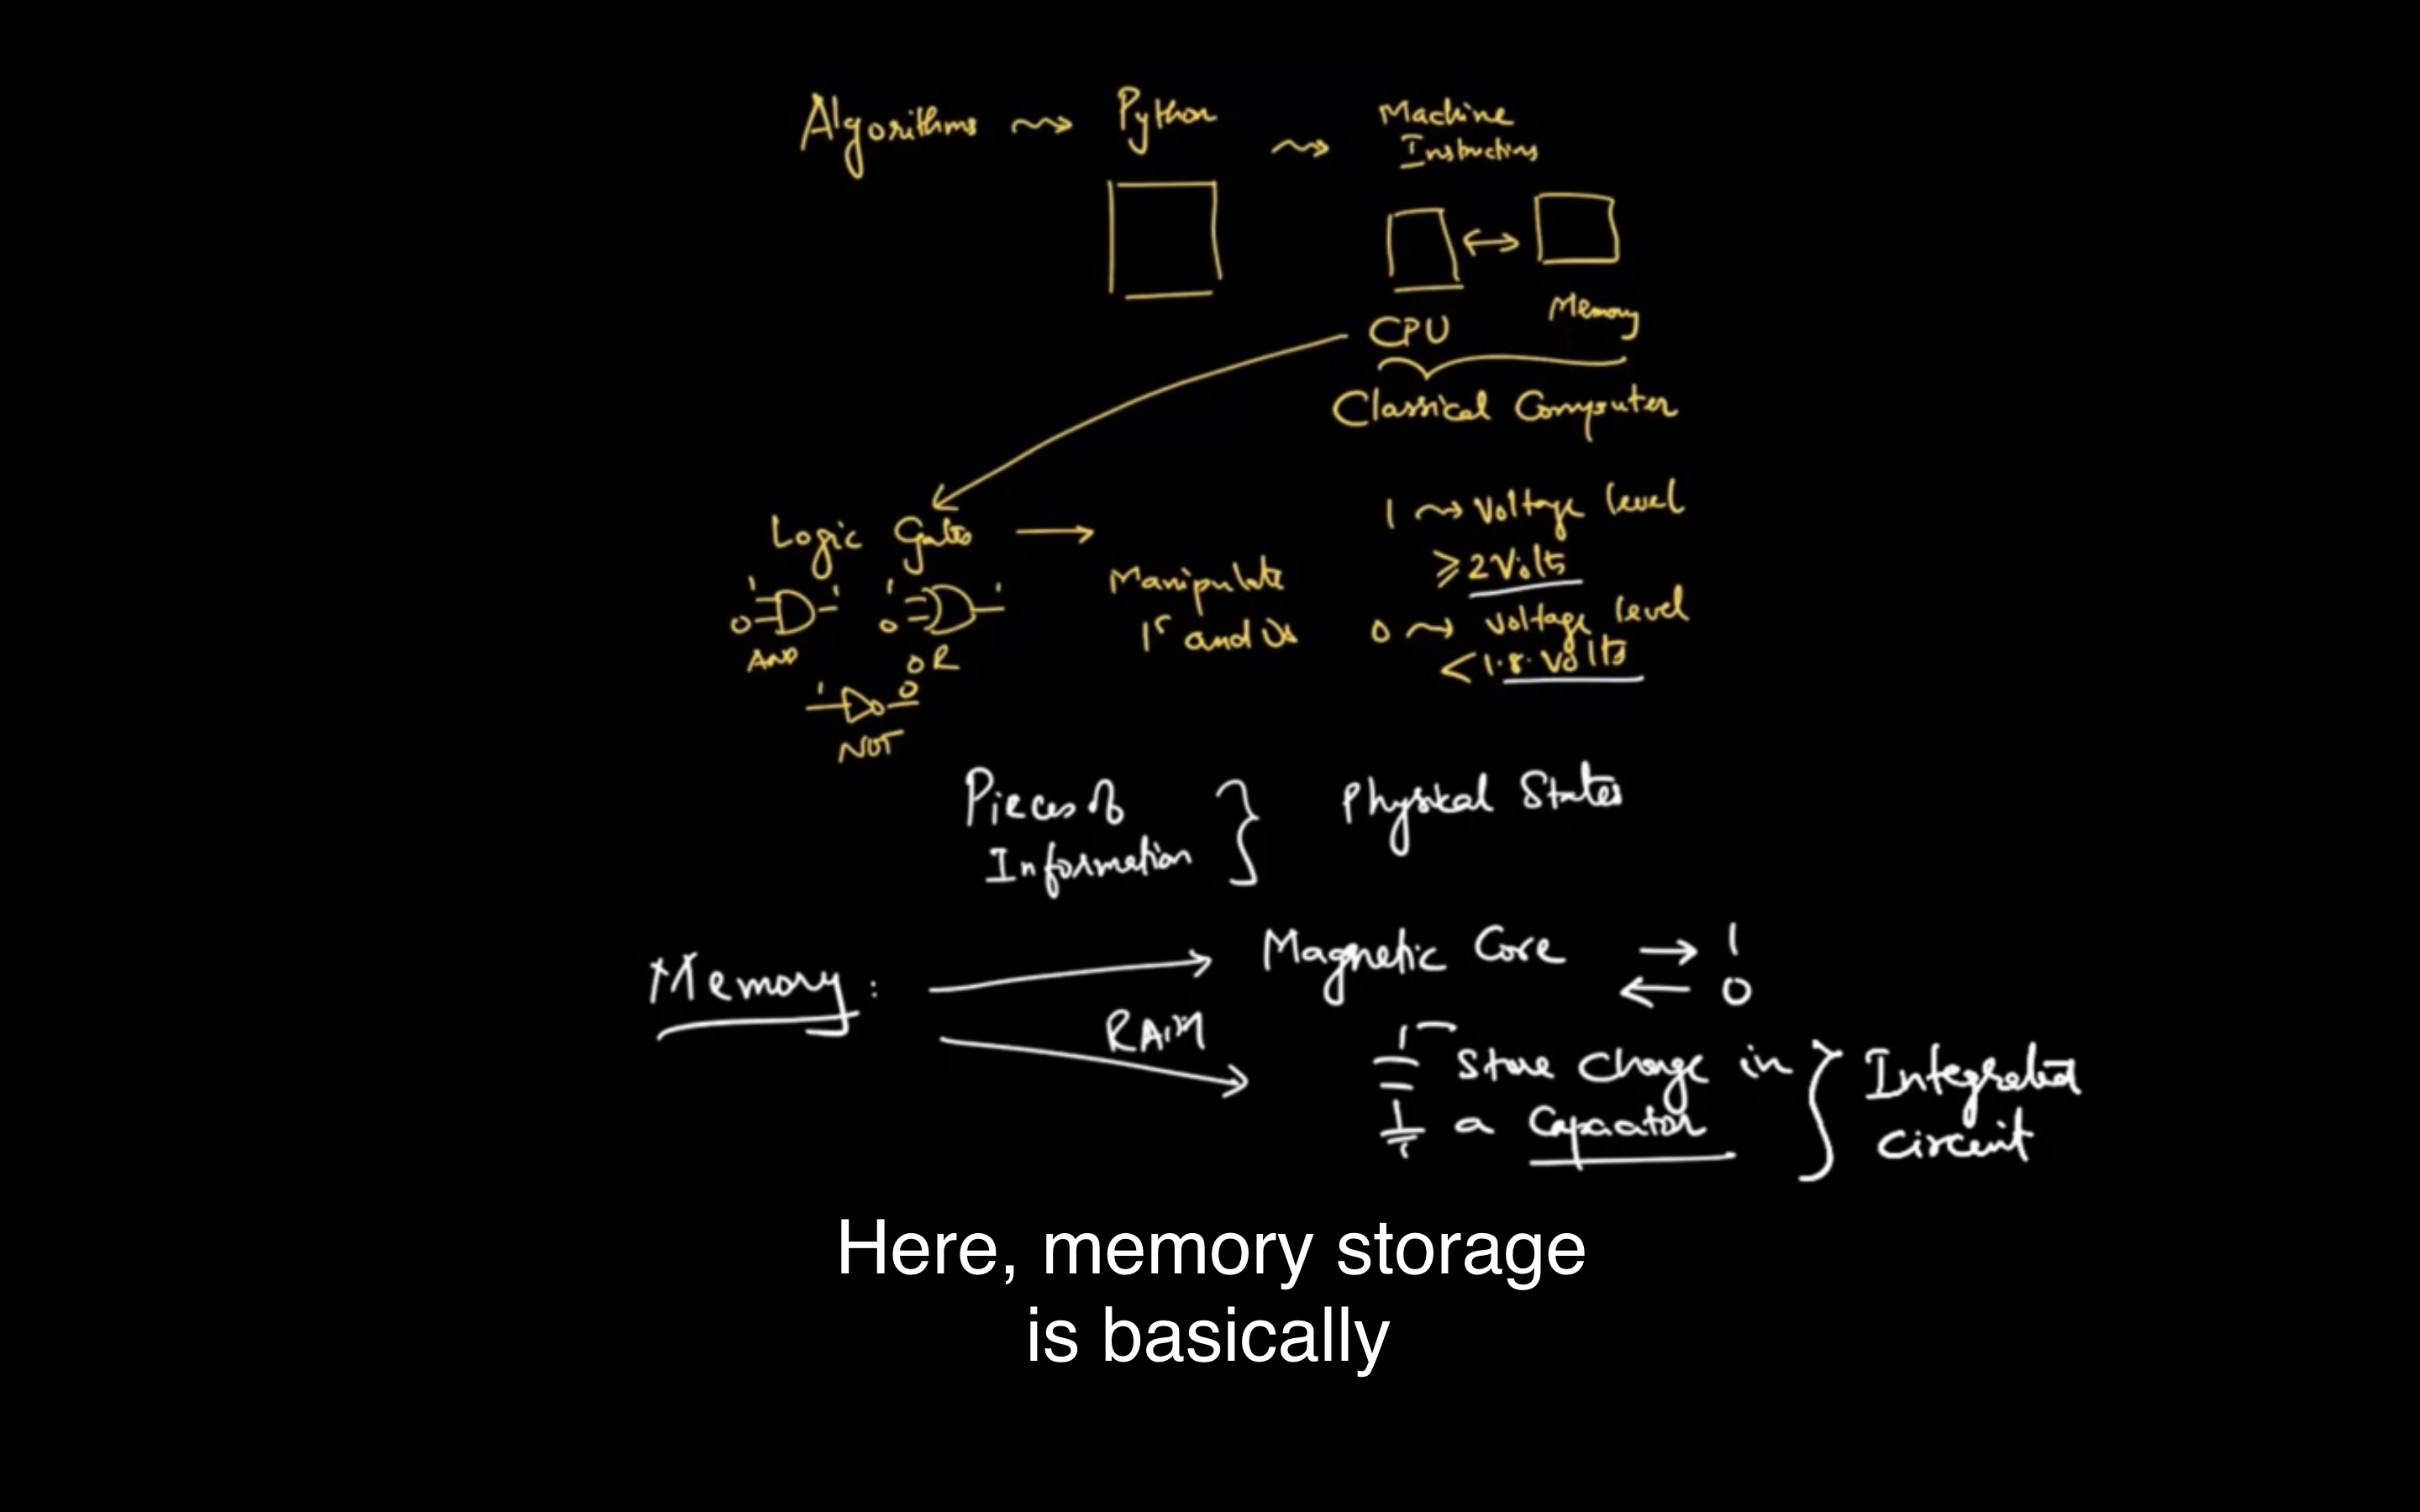 Algorithms ⇝ Python ⇝ Machine
Instructions
CPU ↔ Memory
Classical Computer
Logic Gates → Manipulate
1s and 0s
1 ⇝ Voltage level
≥ 2 Volts
0 ⇝ Voltage level
< 1.8 Volts
1 0 1
AND
1 0 1
OR
1 0
NOT
Pieces of
Information } Physical States
Memory: → Magnetic Core → 1
← 0
RAM → Store charge in
a Capacitor } Integrated
circuit
Here, memory storage
is basically